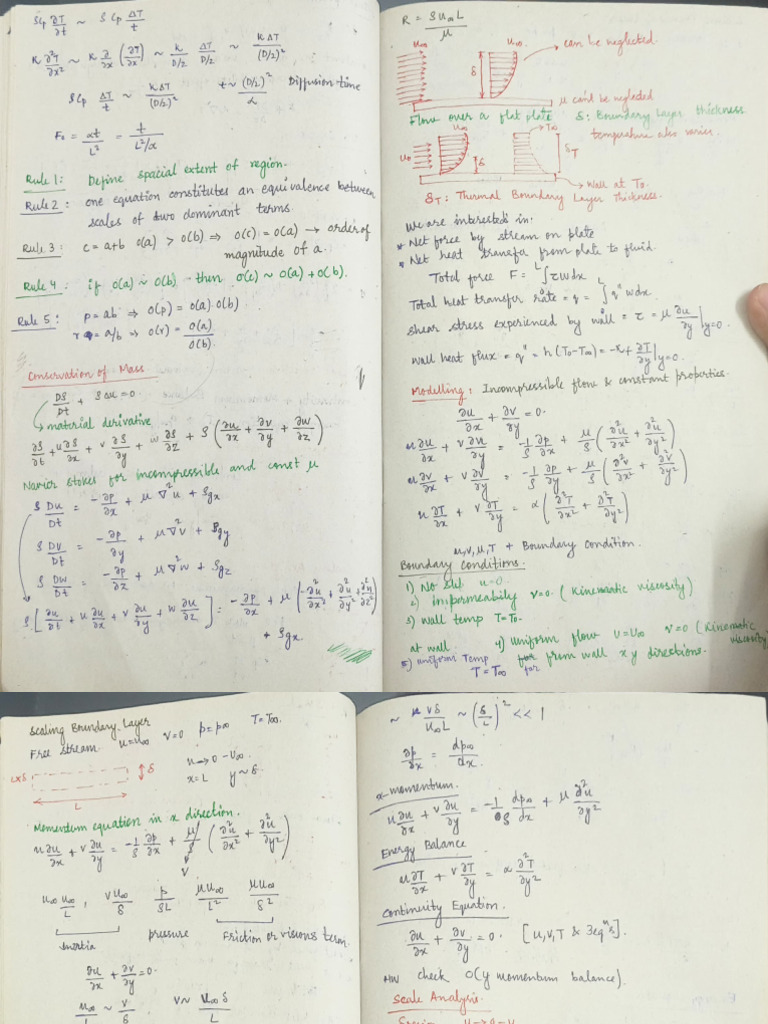 ρCp ∂T/∂t ~ ρ Cp ΔT/t
k ∂²T/∂x² ~ k ∂/∂x (∂T/∂x) ~ k/(D/2) ΔT/(D/2) ~ kΔT/(D/2)²
ρCp ΔT/t ~ kΔT/(D/2)² t ~ (D/2)²/α Diffusion time
Fo = αt/L² = t/(L²/α)
Rule 1: Define spacial extent of region.
Rule 2: one equation constitutes an equivalence between
scales of two dominant terms.
Rule 3: c = a+b O(a) > O(b) ⇒ O(c) = O(a) → order of
magnitude of a.
Rule 4: if O(a) ~ O(b) then O(c) ~ O(a) + O(b).
Rule 5: p = ab ⇒ O(p) = O(a) O(b)
r = a/b ⇒ O(r) = O(a)/O(b)
Conservation of Mass
Dρ/Dt + ρΔu = 0
material derivative
∂ρ/∂t + u∂ρ/∂x + v∂ρ/∂y + w∂ρ/∂z + ρ(∂u/∂x + ∂v/∂y + ∂w/∂z)
Navier stokes for incompressible and const μ
ρ Du/Dt = -∂p/∂x + μ∇²u + ρgx
ρ Dv/Dt = -∂p/∂y + μ∇²v + ρgy
ρ Dw/Dt = -∂p/∂z + μ∇²w + ρgz
ρ[∂u/∂t + u ∂u/∂x + v ∂u/∂y + w ∂u/∂z] = -∂p/∂x + μ(∂²u/∂x² + ∂²u/∂y² + ∂²u/∂z²)
+ ρgx
R = ρu∞L/μ
u∞ u∞ can be neglected
δ
μ can't be neglected
Flow over a flat plate δ: Boundary Layer thickness
temperature also varies
u∞ u∞ T∞ δ δT
wall at To
δT: Thermal Boundary Layer thickness.
We are interested in:
* Net force by stream on plate
* Net heat transfer from plate to fluid.
Total force F = ∫₀ᴸ τwdx
Total heat transfer rate = q = ∫₀ᴸ q" wdx.
shear stress experienced by wall = τ = μ ∂u/∂y|y=0.
wall heat flux = q" = h(To-T∞) = -k+ ∂T/∂y|y=0.
Modelling: Incompressible flow & constant properties.
∂u/∂x + ∂v/∂y = 0.
u∂u/∂x + v∂u/∂y = -1/ρ ∂p/∂x + μ/ρ (∂²u/∂x² + ∂²u/∂y²)
u∂v/∂x + v∂v/∂y = -1/ρ ∂p/∂y + μ/ρ (∂²v/∂x² + ∂²v/∂y²)
u∂T/∂x + v∂T/∂y = α(∂²T/∂x² + ∂²T/∂y²)
u,v,μ,T + Boundary condition.
Boundary conditions.
1) No slip u=0
2) impermeability v=0 (Kinematic viscosity)
3) wall temp T=To.
at wall 4) uniform flow U=U∞ v=0 (Kinematic viscosity)
5) uniform Temp from wall x y directions.
T=T∞ for
Scaling Boundary Layer
Free stream. u=u∞ v=0 p=p∞ T=T∞.
L×δ δ u→0-U∞
L x=L y~δ
Momentum equation in x direction.
u∂u/∂x + v∂u/∂y = -1/ρ ∂p/∂x + μ/ρ (∂²u/∂x² + ∂²u/∂y²)
ν
u∞ u∞/L, v u∞/δ p/ρL μu∞/L² μu∞/δ²
Inertia pressure Friction or viscous term
∂u/∂x + ∂v/∂y = 0.
u∞/L ~ v/δ v ~ U∞ δ/L
~ u vδ/u∞L ~ (δ/L)² << 1
∂p/∂x = dp∞/dx.
x-momentum.
u∂u/∂x + v∂u/∂y = -1/ρ dp∞/dx + μ ∂²u/∂y²
Energy Balance
u∂T/∂x + v∂T/∂y = α ∂²T/∂y²
Continuity Equation.
∂u/∂x + ∂v/∂y = 0. [u,v,T & 3eqⁿs].
HW check O(y momentum balance).
Scale Analysis.